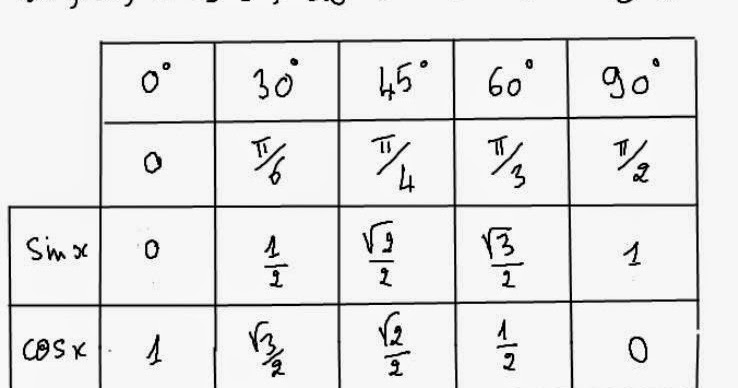 0° 30° 45° 60° 90°
0 π/6 π/4 π/3 π/2
Sin x 0 1/2 √2/2 √3/2 1
cos x 1 √3/2 √2/2 1/2 0